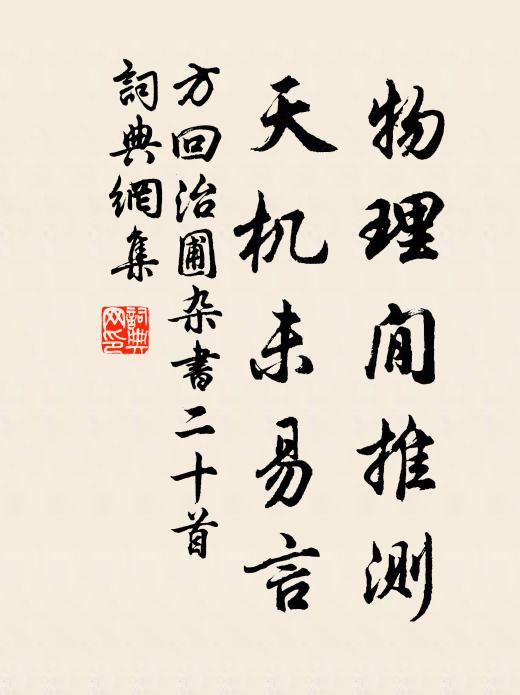 物理闲推测
天机未易言
方回治圃杂書二十首
詞典網集
詞典网印